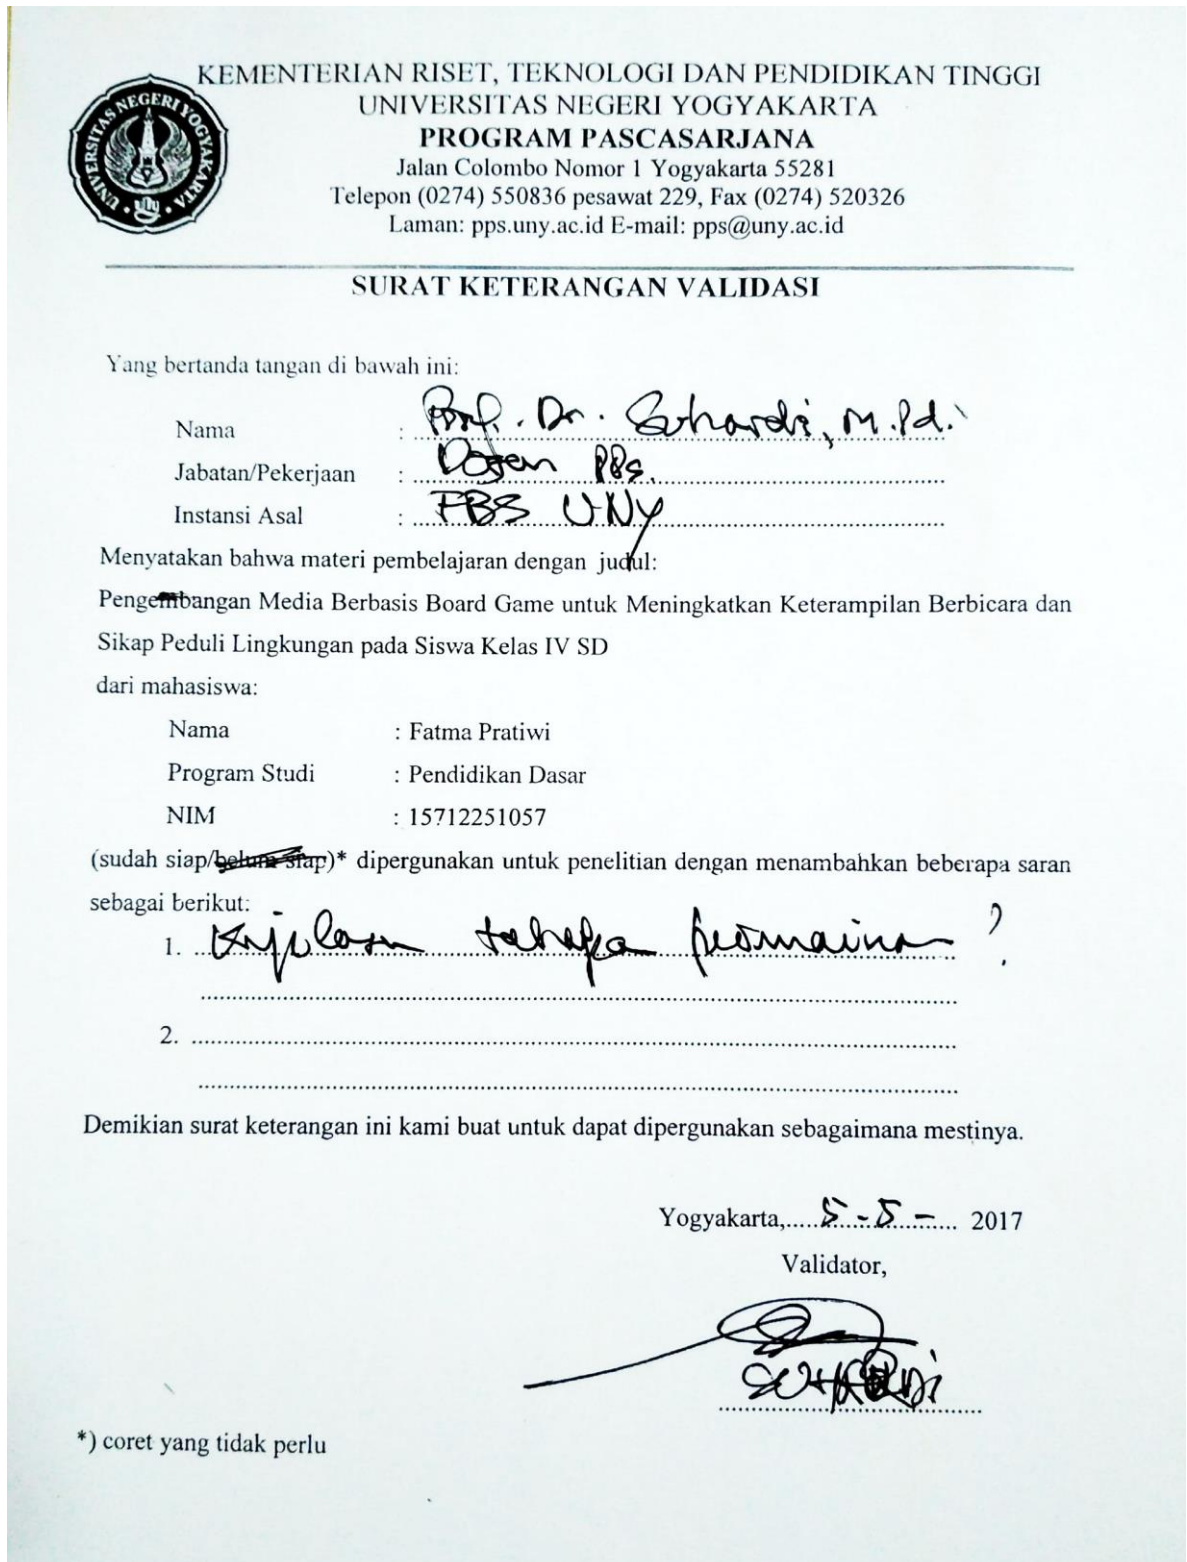 KEMENTERIAN RISET, TEKNOLOGI DAN PENDIDIKAN TINGGI
UNIVERSITAS NEGERI YOGYAKARTA
PROGRAM PASCASARJANA
Jalan Colombo Nomor 1 Yogyakarta 55281
Telepon (0274) 550836 pesawat 229, Fax (0274) 520326
Laman: pps.uny.ac.id E-mail: pps@uny.ac.id
UNIVERSITAS NEGERI YOGYAKARTA
SURAT KETERANGAN VALIDASI
Yang bertanda tangan di bawah ini:
Nama : Prof. Dr. Suhardi, M.Pd.
Jabatan/Pekerjaan : Dosen PPs.
Instansi Asal : FBS UNY
Menyatakan bahwa materi pembelajaran dengan judul:
Pengembangan Media Berbasis Board Game untuk Meningkatkan Keterampilan Berbicara dan
Sikap Peduli Lingkungan pada Siswa Kelas IV SD
dari mahasiswa:
Nama : Fatma Pratiwi
Program Studi : Pendidikan Dasar
NIM : 15712251057
(sudah siap/belum siap)* dipergunakan untuk penelitian dengan menambahkan beberapa saran
sebagai berikut:
1. tahapan permainan ?
2.
Demikian surat keterangan ini kami buat untuk dapat dipergunakan sebagaimana mestinya.
Yogyakarta, 5-5- 2017
Validator,
SUHARDI
*) coret yang tidak perlu